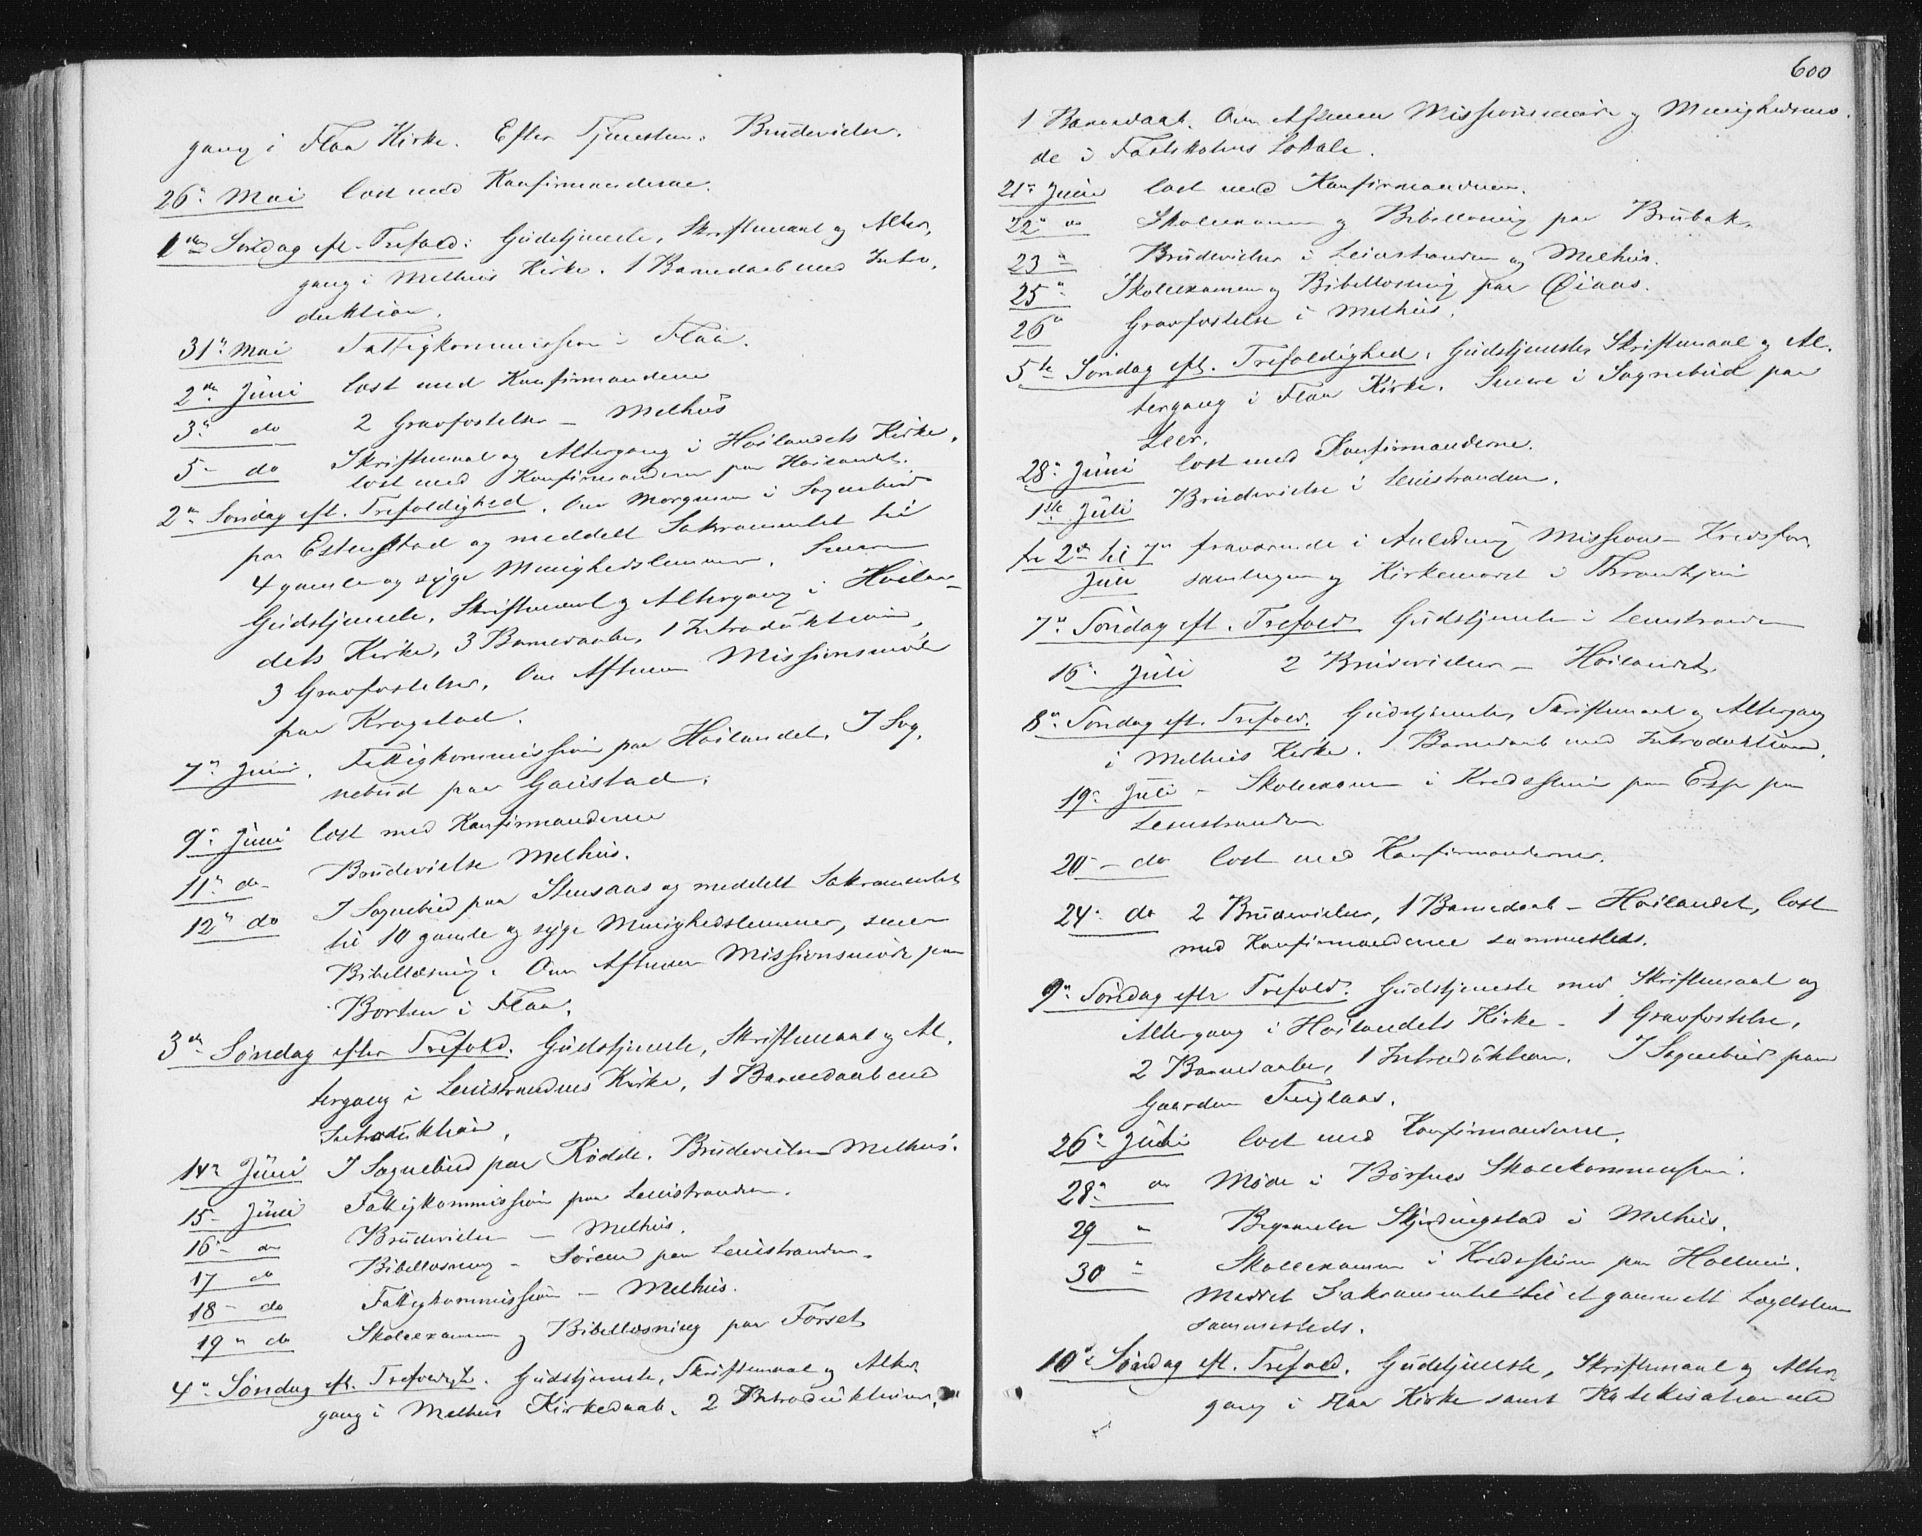 gang i Flaa Kirke. Efter Tjenesten. Brudevielse.
26n Mai læst med Konfirmanderne.
1ste Søndag eft. Trefold: Gudstjeneste, Skriftemaal og Alter,
gang i Melhus Kirke. 1 Barnedaab med Intro,
duktion.
31n Mai Fattigkommission i Flaa.
2den Juni læst med Konfirmanderne
3n do 2 Gravfæstelser – Melhus
5n do Skriftemaal og Altergang i Høilandets Kirke,
læst med Konfirmanderne paa Høilandet.
2n Søndag eft. Trefoldighed. Om Morgenen i Sognebud
paa Estenstad og meddelt Sakramentet til
4 gamle og syge Menighedslemmer. Senere
Gudstjeneste, Skriftemaal og Altergang i Høilan-
dets Kirke, 3 Barnedaabe, 1 Introduktion,
3 Gravfæstelser. Om Aftenen Missionsmøde
paa Kragstad.
7n Juni. Fattigkommission paa Høilandet. I Sog,
nebud paa Gaustad.
9n Juni læst med Konfirmanderne
11n do Brudevielse Melhus.
12n do I Sognebud paa Stensaas og meddelt Sakramentet
til 10 gamle og syge Menighedslemmer, senere
Bibellæsning. Om Aftenen Missionsmøde paa
Borten i Flaa.
3die Søndag efter Trefold. Gudstjeneste, Skriftemaal og Al,
tergang i Leinstrandens Kirke, 1 Barnedaab med
Introduktion.
14n Juni I Sognebud paa Rødde. Brudevielse Melhus.
15– Juni Fattigkommission paa Leinstranden.
16– do Brudevielse – Melhus.
17 do Bibellæsning – Sørem paa Leinstranden.
18– do Fattigkommission – Melhus.
19n do Skoleexamen og Bibellæsning paa Forset
4n Søndag eft. Trefoldigh. Gudstjeneste, Skriftemaal og Alter
gang i Melhus Kirkedaab. 2 Introduktioner,
600
1 Barnedaab. Om Aftenen Missionsmøde og Menighedsmø,
de i Fastskolens Lokale.
21n Juni læst med Konfirmanderne.
22n do Skoleexamen og Bibellæsning paa Brubak.
23 " Brudevielser i Leinstranden og Melhus.
25n Skoleexamen og Bibellæsning paa Øiaas.
26n Gravfæstelse i Melhus.
5te Søndag eft. Trefoldighed. Gudstjeneste, Skriftemaal og Al,
tergang i Flaa Kirke. Senere i Sognebud paa
Leer.
28n Juni læst med Konfirmanderne.
1ste Juli Brudevielse i Leinstranden.
fra 2den til 7n fraværende i Anledning Missions-Kredsfor,
Juli samlingen og Kirkemødet i Throndhjem
7n Søndag eft. Trefold. Gudstjeneste i Leinstranden
16n Juli 2 Brudevielser – Høilandet.
8n Søndag eft. Trefold. Gudstjeneste, Skriftemaal og Altergang
i Melhus Kirke. 1 Barnedaab med Introduktion.
19n Juli – Skoleexamen i Kredsstuen paa Esp paa
Leinstranden
20– do læst med Konfirmanderne.
24n do 2 Brudevielser, 1 Barnedaab – Høilandet, læst
med Konfirmanderne sammesteds.
9n Søndag efter Trefold. Gudstjeneste med Skriftemaal og
Altergang i Høilandets Kirke – 1 Gravfæstelse,
2 Barnedaabe, 1 Introduktion. I Sognebud paa
Gaarden
26n Juli læst med Konfirmanderne.
28n do Møde i Børsens Skolekommission.
29 " Begravelse i Melhus.
30 " Skoleexamen i Kredsstuen paa Hollum.
Meddelt Sakramentet til et gammelt Lægdslem
sammesteds.
10n Søndag eft. Trefold. Gudstjeneste, Skriftemaal og Alter,
gang i Flaa Kirke samt Katekisation med